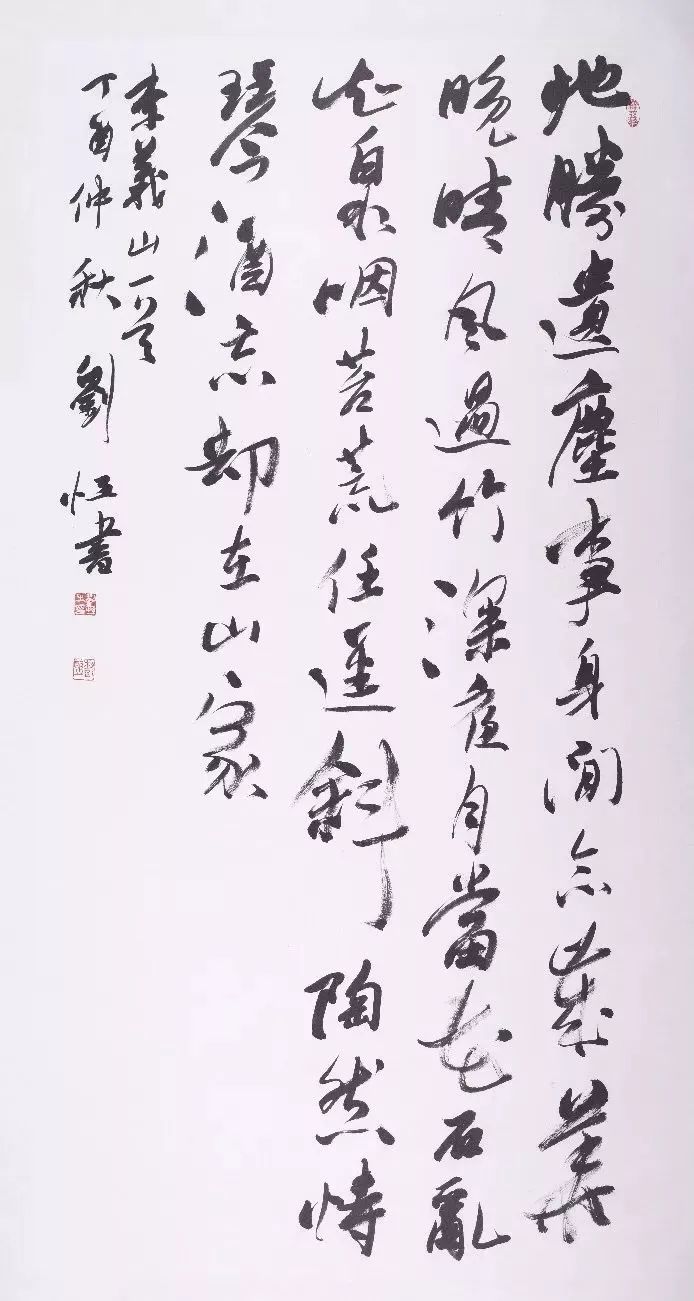 地勝遺塵事身閒念歲華
晚晴風過竹深夜月當花石亂
知泉咽苔荒任逕斜陶然恃
琴酒忘却在山家
李義山一首
丁酉仲秋劉恒書